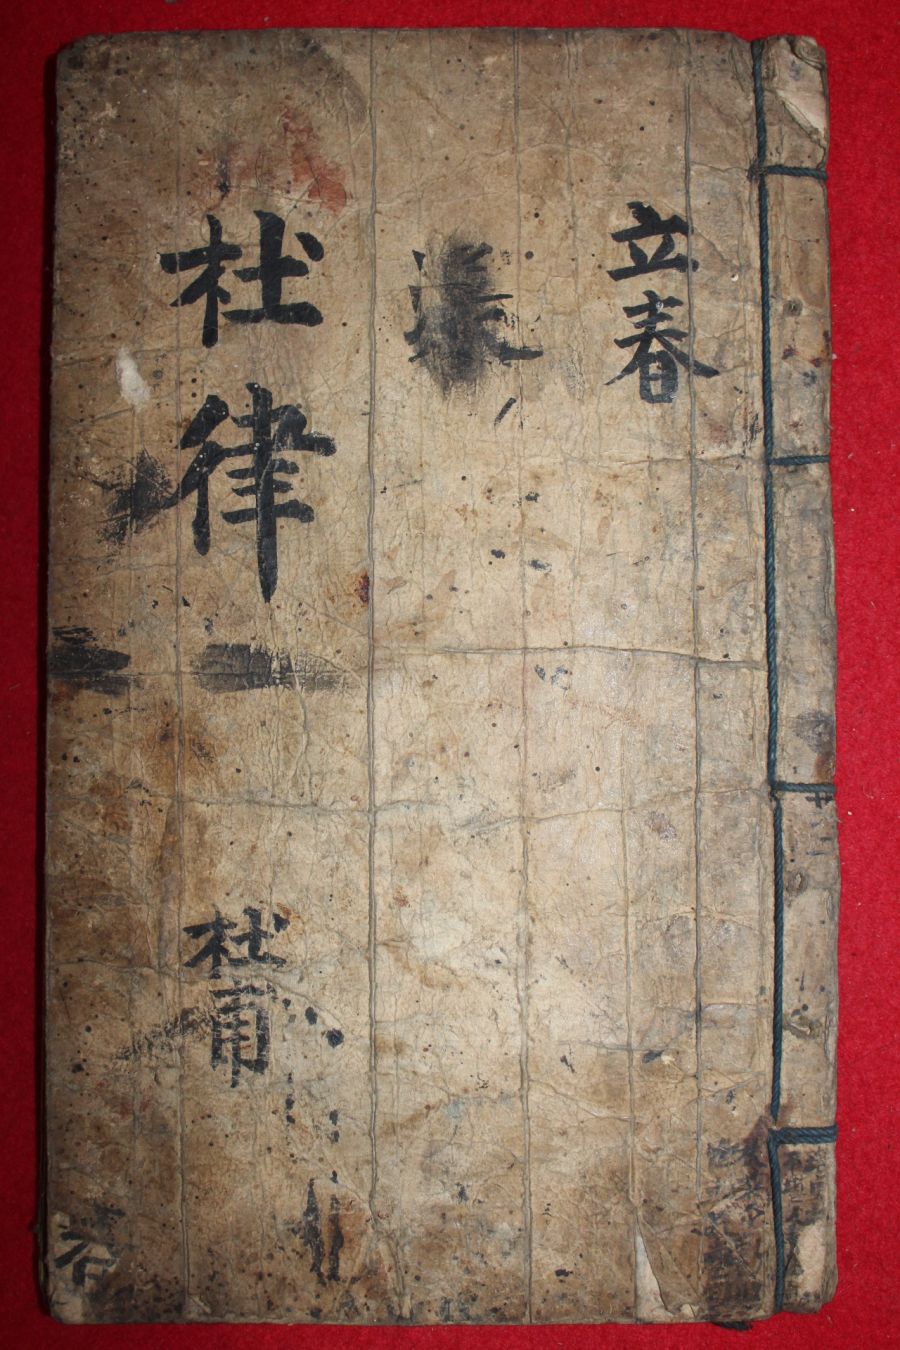 立春
杜律
杜甫